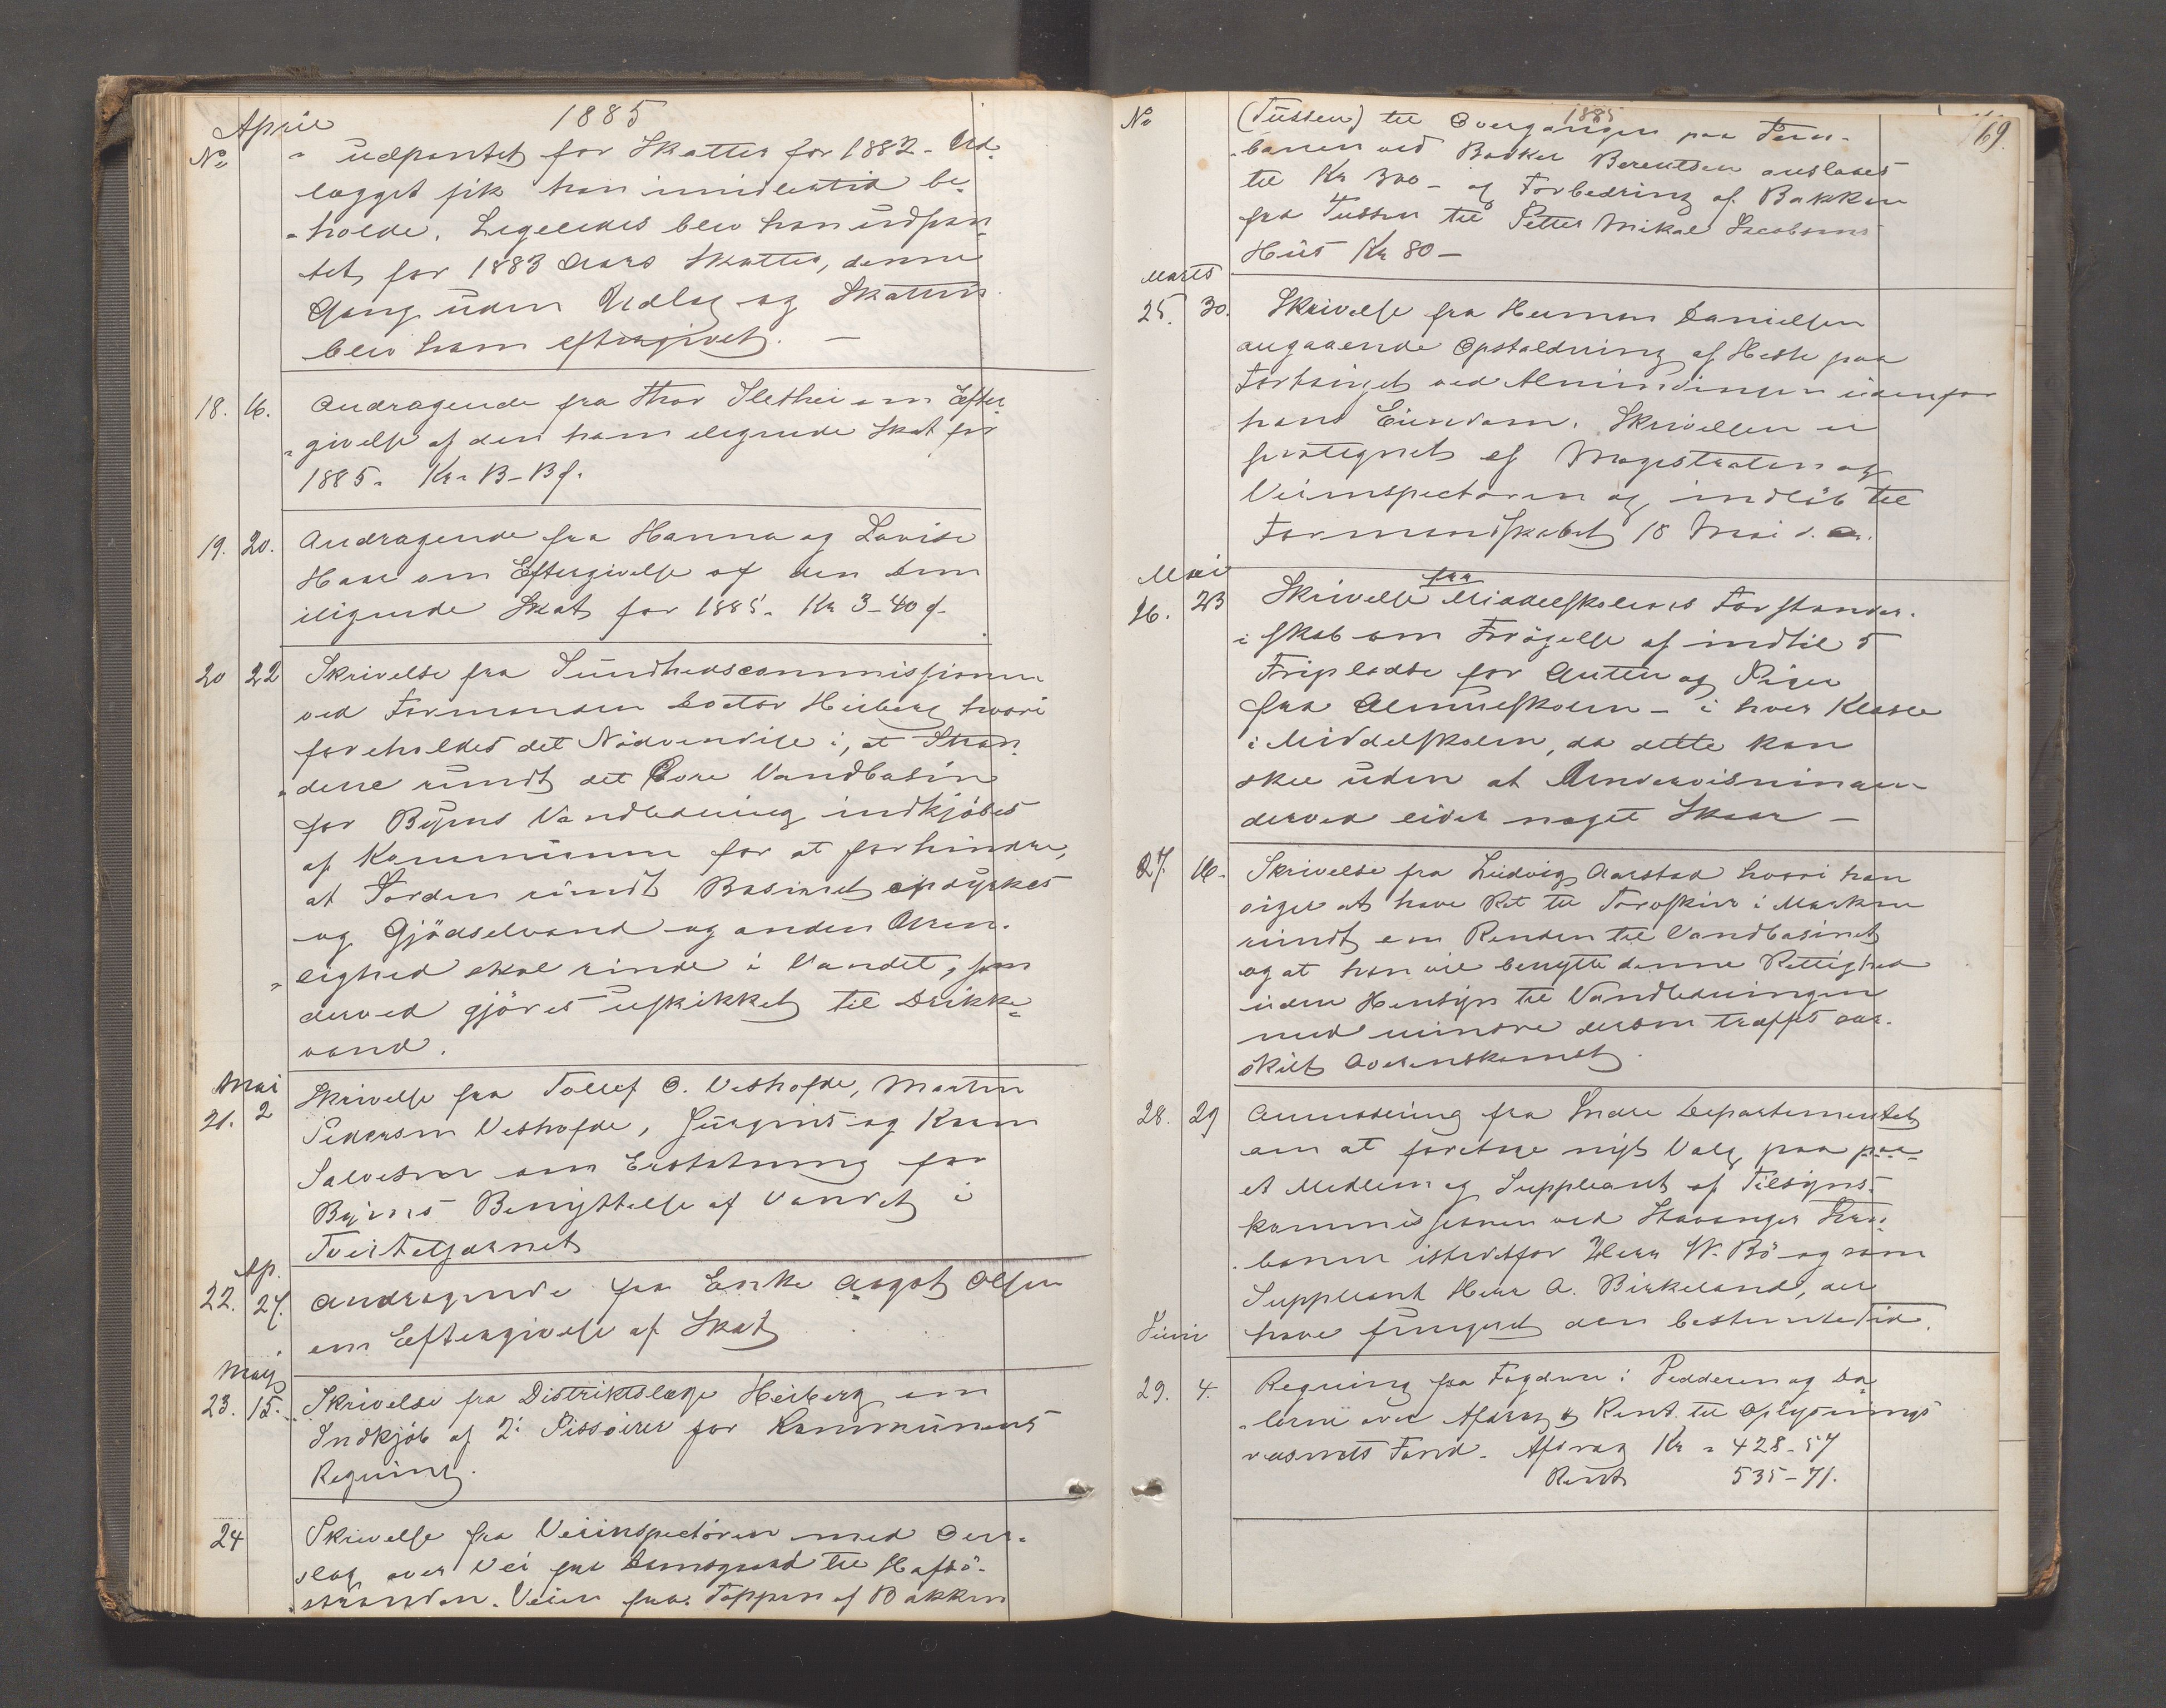 April 1885
No udpantet for Skatter for 1882 - Ud-
lægget fik han imidlertid be-
holde. Ligeledes blev han udpan-
tet for 1883 Aars Skatter, denne
Gang uden Udlæg og Skatten
blev ham eftergivet. —
18. 16. Andragende fra Thor Slethei om Efter-
givelse af den ham ilignede Skat for
1885. Kr. 13-13 ø.
19. 20. Andragende fra Hanna og Lovise
Haar om Eftergivelse af den dem
ilignede Skat for 1885. Kr 3-40 ø.
20 22 Skrivelse fra Sundhedscommissionen
ved Formanden Doctor Heiberg hvori
foreholdes det Nödvendige i, at Stran-
dene rundt det Övre Vandbasin
for Byens Vandledning indkjöbes
af Kommunen for at forhindre,
at Jorden rundt Basinet opdyrkes
og Gjödselvand og anden Uren-
lighed skal rinde i Vandet, som
derved gjöres uskikket til Drikke-
vand.
Mai
21. 2 Skrivelse fra Tollef O. Veshofde, Martin
Pedersen Veshofde, Jürgens og Karen
Salvesen om Erstatning for
Byens Benyttelse af Vandet i
Tveitetjernet
Ap.
22. 27. Andragende fra Enke Aagot Olsen
om Eftergivelse af Skat
Maj
23. 15. Skrivelse fra Distriktslæge Heiberg om
Indkjöb af 2 Pissoirer for Kommunens
Regning.
24 Skrivelse fra Veiinspectören med Over-
slag over Vei fra Damsgaard til Hafsö-
stranden. Veien fra Toppen af Bakken
No 1885 169.
(Tussen) til Overgangen paa Jern-
banen ved Bödker Berentsen anslaaes
til Kr 300 - og Forbedring af Bakken
fra Tussen til Petter Mikal Jacobsens
Hus Kr 80 —
Marts
25. 30. Skrivelse fra Herman Danielsen
angaaende Opstaldning af Heste paa
Fortauget ved Almindingen udenfor
hans Eiendom. Skrivelsen er
paategnet af Magistraten og
Veiinspectören og indlöb til
Formandskabet 18 Mai d. a.
Mai
26. 23 Skrivelse fra Middelskolens Forstander-
skab om Forögelse af indtil 5
Fripladse for Gutter og Piger
fra Almueskolen - i hver Klasse
i Middelskolen, da dette kan
skee uden at Undervisningen
derved lider noget Skaar —
27. 16. Skrivelse fra Ludvig Aarstad hvori han
siger at have Ret til Torvskjær i Marken
rundt om Renden til Vandbasinet
og at han vil benytte denne Rettighed
uden Hensyn til Vandledningen
med mindre dersom træffes sær-
skilt Overenskomst.
28. 29 Anmodning fra Indre Departementet
om at foretage nyt Valg paa paa
et Medlem og Suppleant af Tilsyns-
kommissionen ved Stavanger Jern-
banen istedetfor Herr W. Bö og som
Suppleant Herr A. Birkeland, der
have fungeret den bestemte Tid.
Juni
29. 4. Regning fra Fogden i Jedderen og Da-
lerne over Afdrag & Rent til Oplysnings
væsenets Fond. Afdrag Kr - 428-57
Rent 535-71.